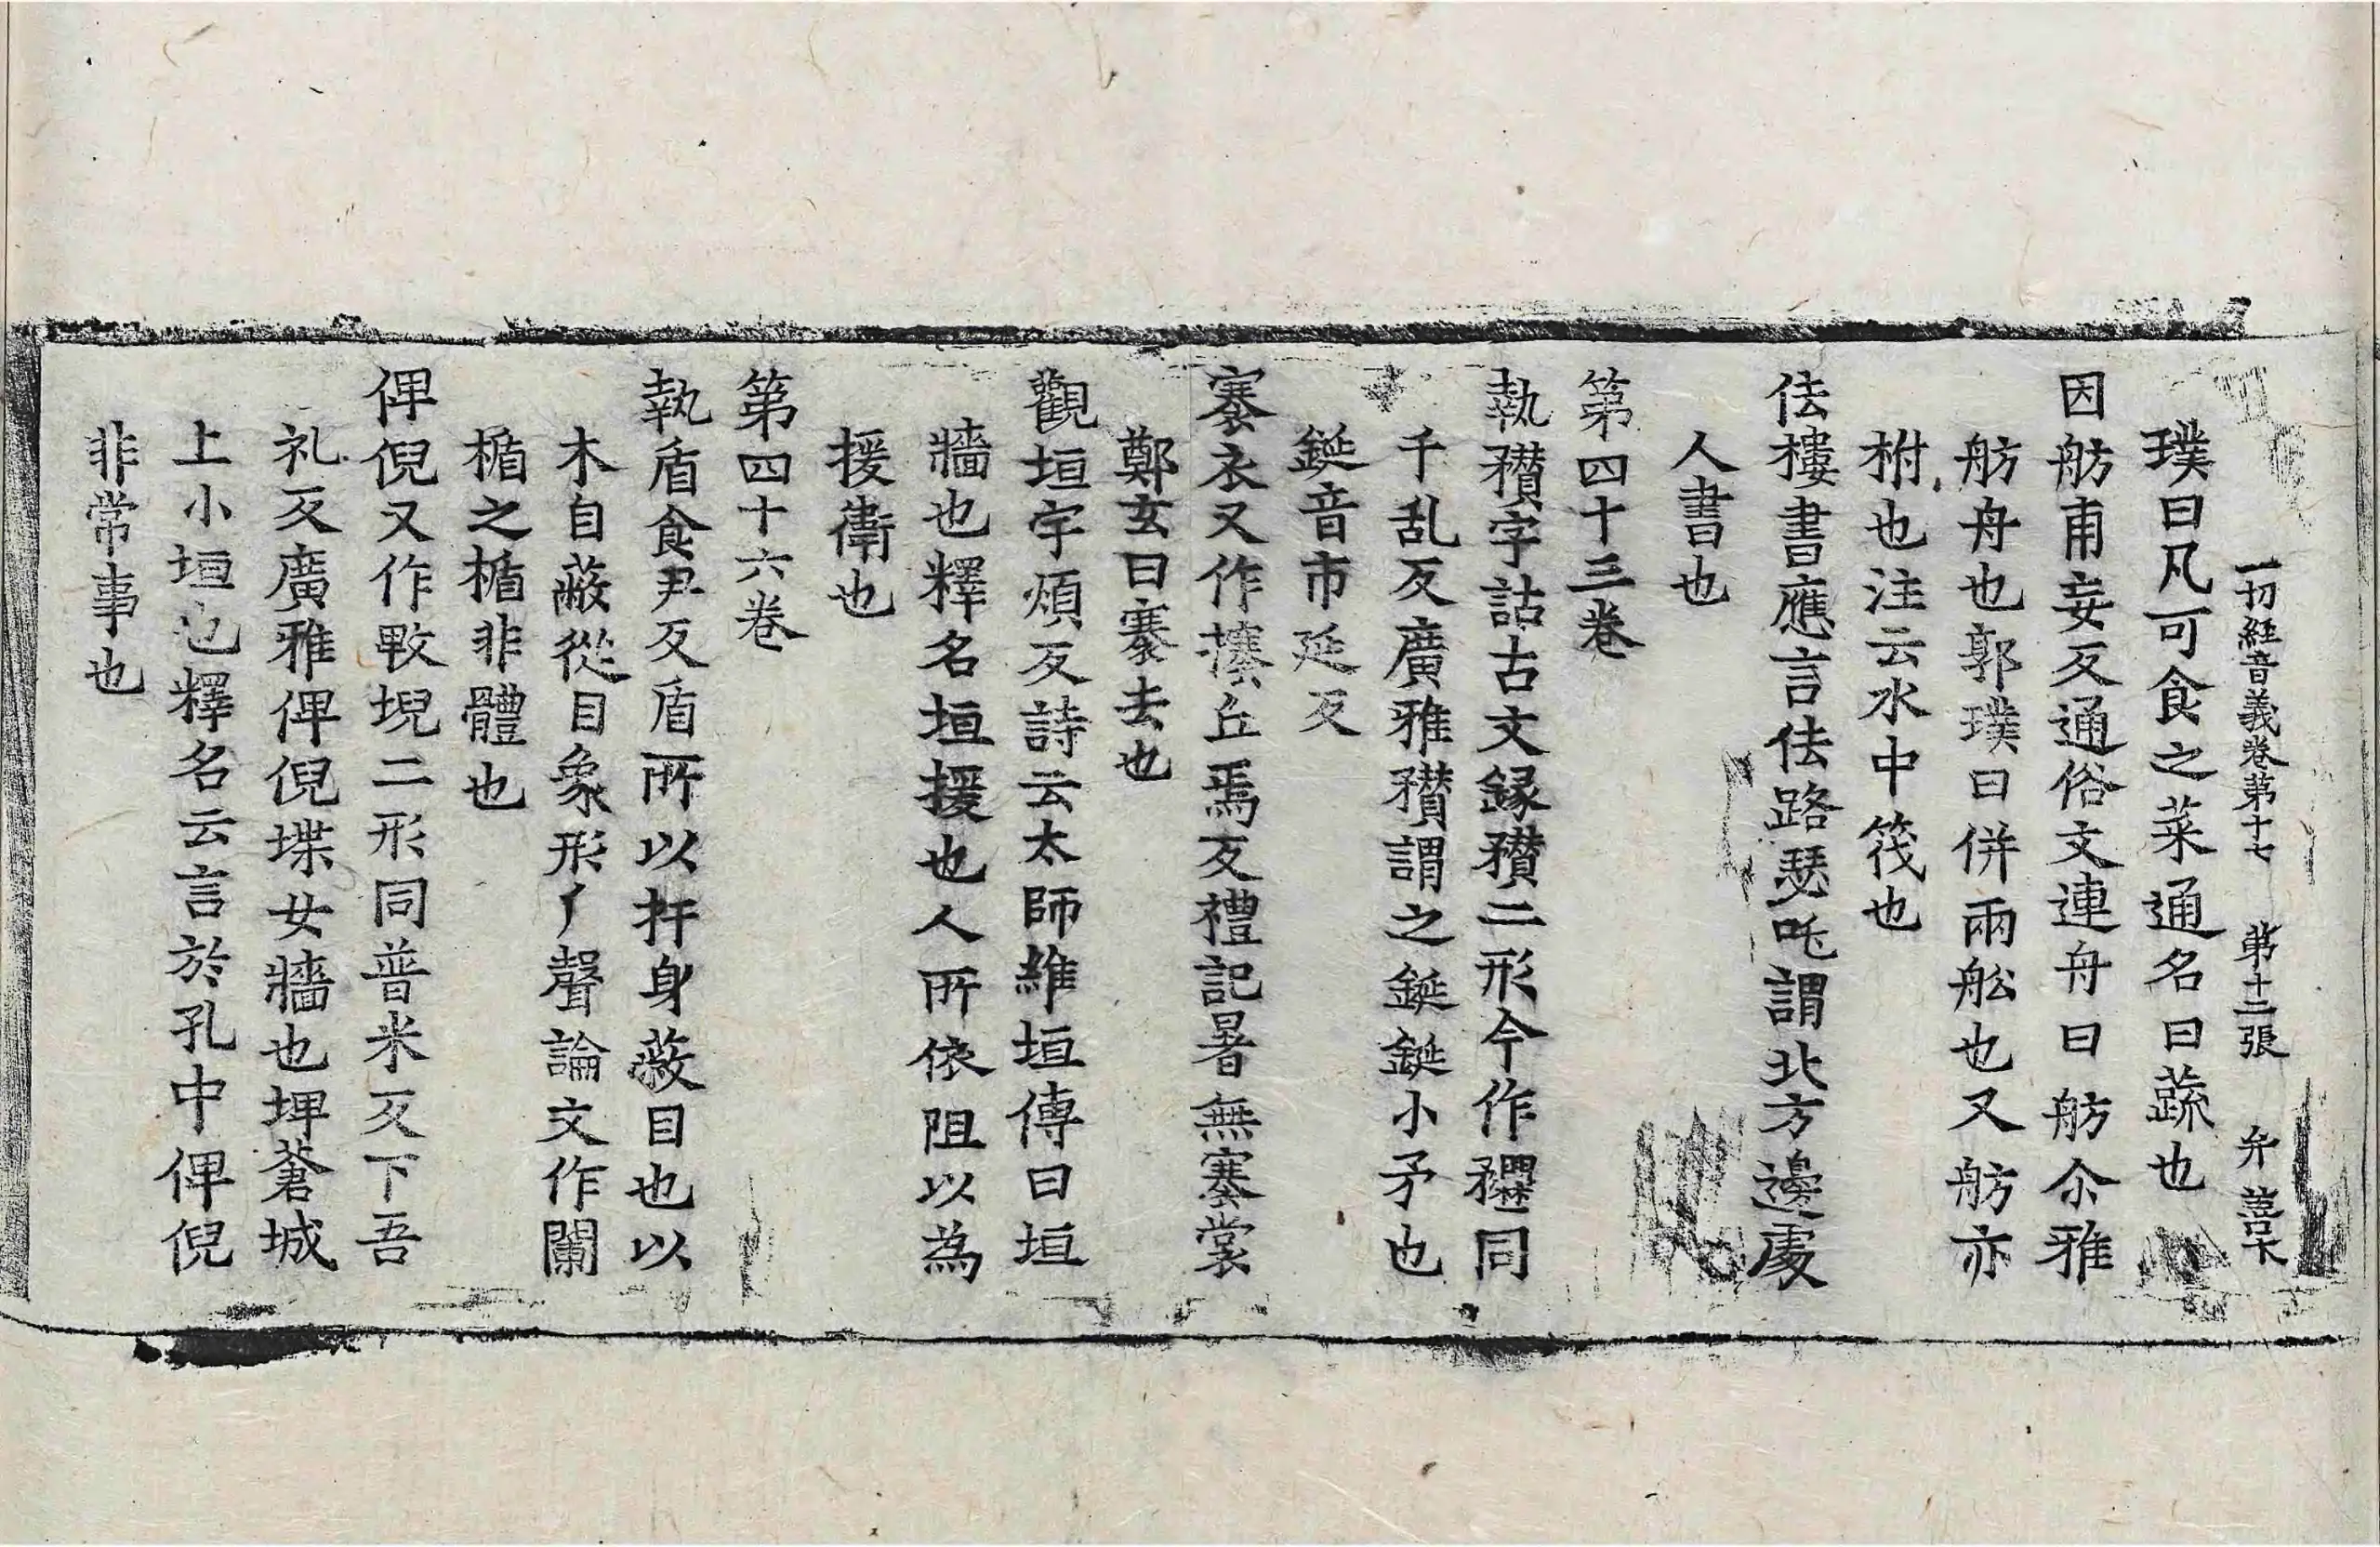 一切經音義卷第十七 第十二張 弁
璞曰凡可食之菜通名曰蔬也
因舫甫妄反通俗文連舟曰舫尒雅
舫舟也郭璞曰併兩舩也又舫亦
柎也注云水中筏也
佉樓書應言佉路瑟吒謂北方邊處
人書也
第四十三卷
執穳字詁古文錄穳二形今作𥎞同
千乱反廣雅穳謂之鋋鋋小矛也
鋋音市延反
褰衣又作攐丘焉反禮記暑無褰裳
鄭玄曰褰去也
觀垣宇煩反詩云太師維垣傳曰垣
牆也釋名垣援也人所依阻以為
援衛也
第四十六卷
執盾食尹反盾所以扞身蔽目也以
木自蔽從目象形𠂆聲論文作闌
楯之楯非體也
俾倪又作㪏堄二形同普米反下吾
礼反廣雅俾倪堞女牆也埤蒼城
上小垣也釋名云言於孔中俾倪
非常事也